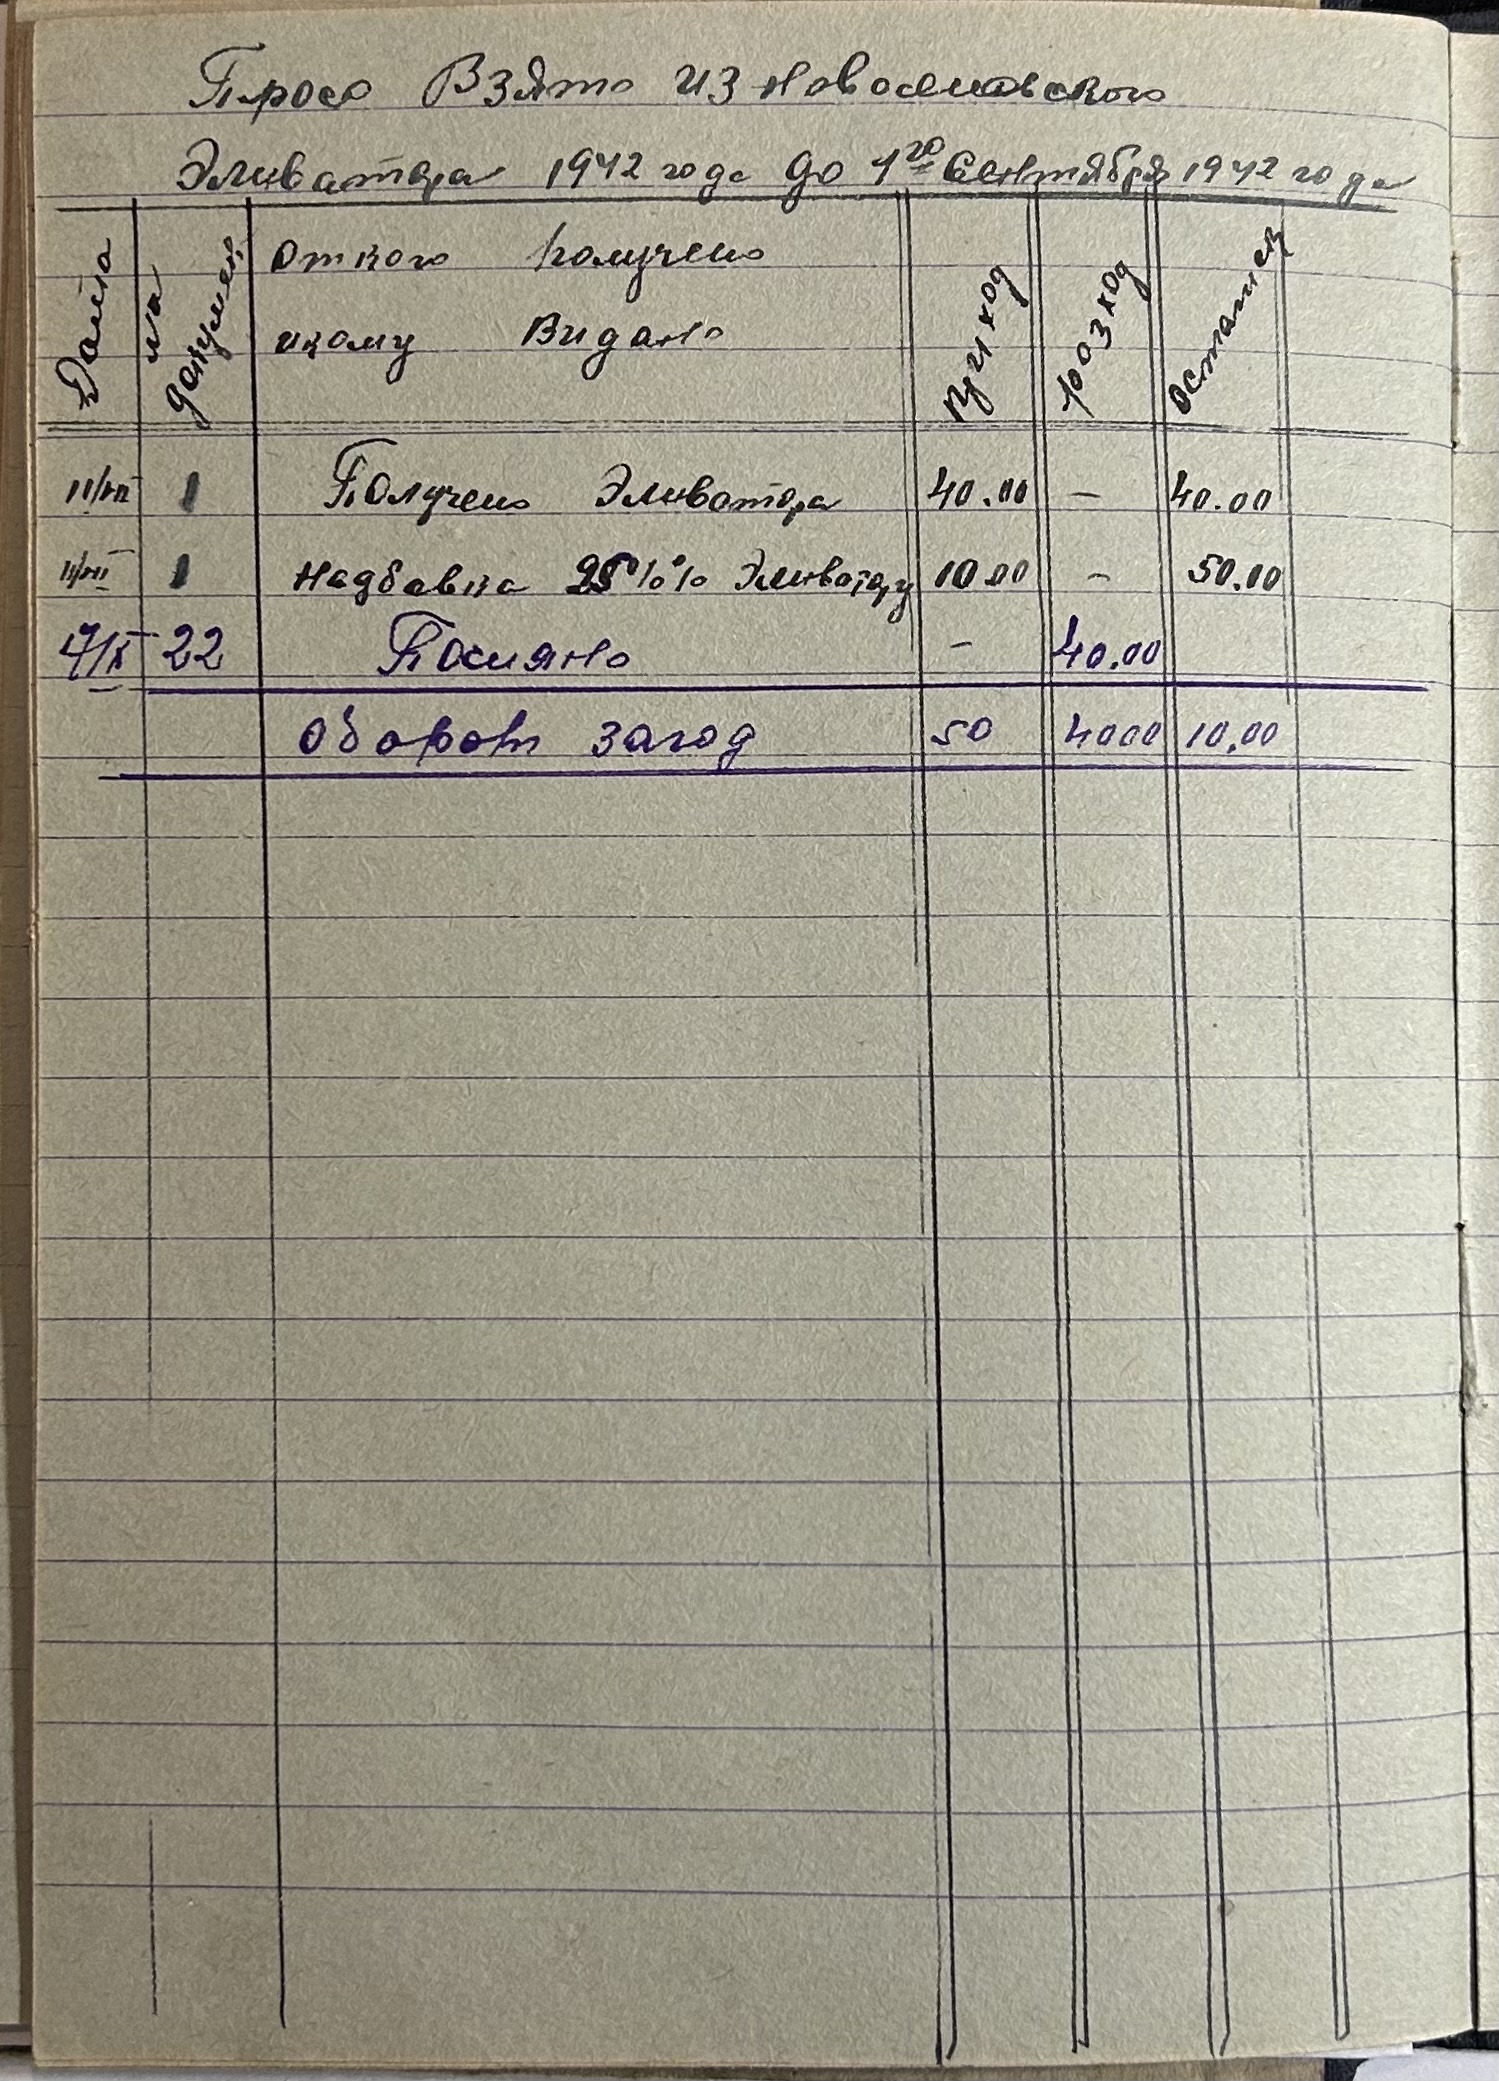 Просо Взято из
Эливатора 1942 года до 1го Сентября 1942 года
Дата
№
докумен
от кого получено
и кому Видано
приход
розход
остаток
11/VII 1 Получено Эливатора 40.00 — 40.00
11/VII 1 Надбавка 25%% Эливатору 10.00 — 50.00
22 Посияно — 40.00
Оборот загод 50 4000 10.00